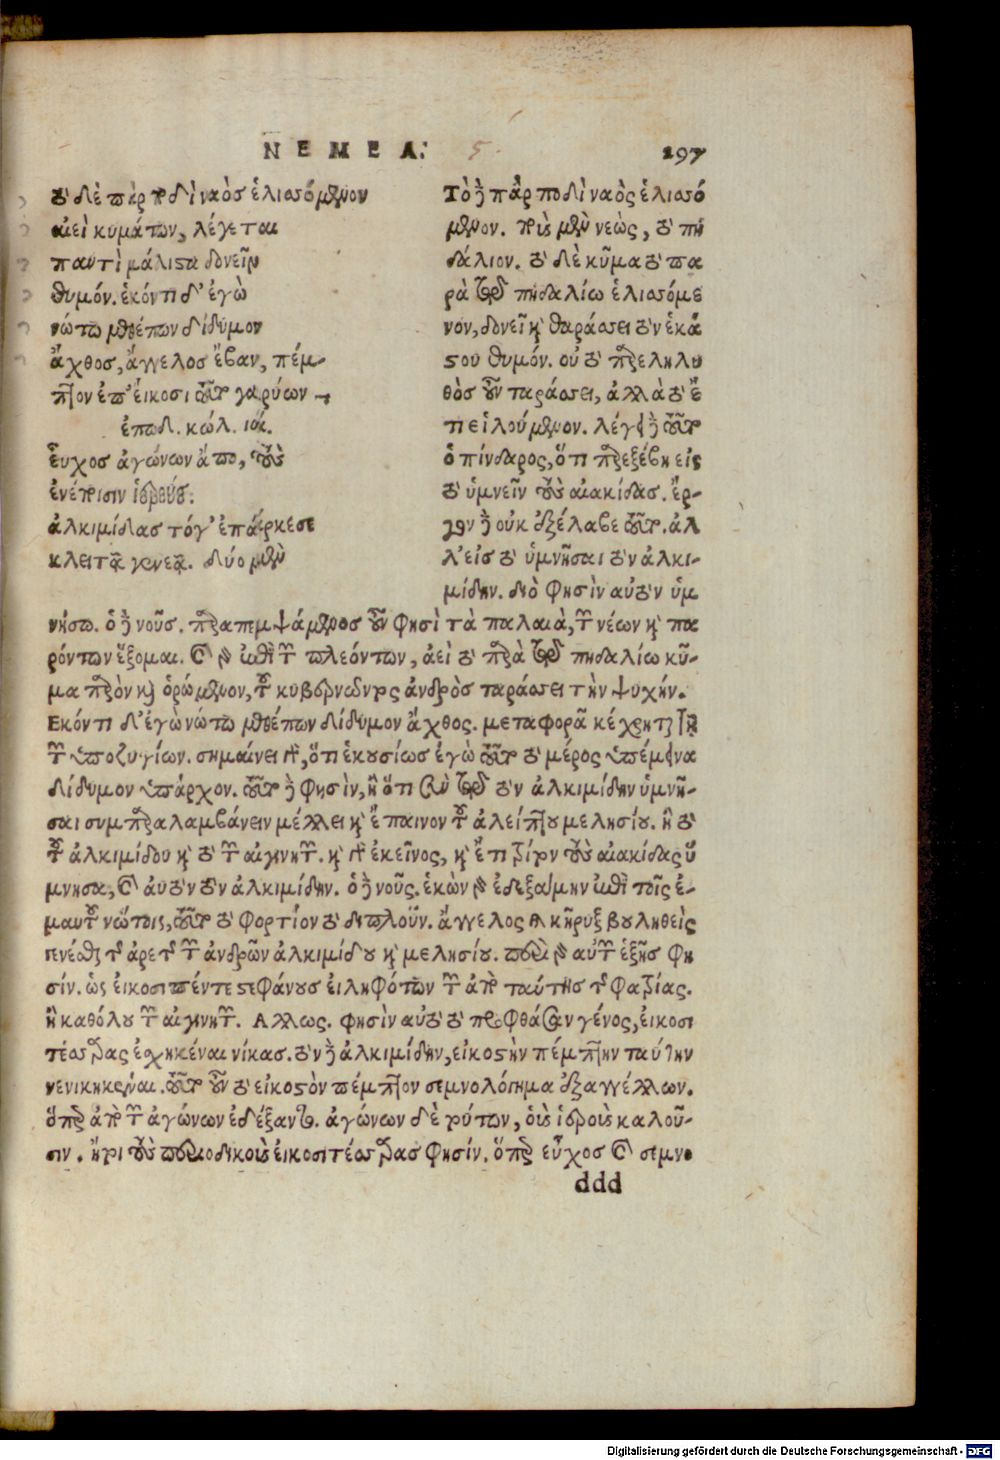 ΝΕΜΕΑ. 5. 197
τὸ δὲ πὰρ ποδὶ ναὸς ἑλισσόμενον
αἰεὶ κυμάτων, λέγεται
παντὶ μάλιστα δονεῖν
θυμόν. ἑκόντι δ' ἐγὼ
νώτῳ μεθέπων δίδυμον
ἄχθος, ἄγγελος ἔβαν, πέμ-
πτον ἐπ' εἴκοσι τοῦτο γαρύων
ἐπῳδ. κώλ. ιά.
εὖχος ἀγώνων ἄπο, τοὺς
ἐνέποισιν ἱερούς.
ἀλκιμίδας τόγ' ἐπάρκεσε
κλειτᾷ γενεᾷ. δύο μὲν
Τὸ δὲ πὰρ ποδὶ ναὸς ἑλισσό
μενον. ποὺς μὲν νεὼς, τὸ πη
δάλιον. τὸ δὲ κῦμα τὸ πα
ρὰ τῷ πηδαλίῳ ἑλισσόμε
νον, δονεῖ καὶ θαράσσει τὸν ἑκά
στου θυμόν. οὐ τὸ προεληλυ
θὸς οὖν ταράσσει, ἀλλὰ τὸ ἔ
τι εἰλούμενον. λέγει δὲ τοῦτο
ὁ πίνδαρος, ὅτι προεξέβη εἰς
τὸ ὑμνεῖν τοὺς αἰακίδας. ἔρ-
γον δὲ οὐκ ἐξέλαβε τοῦτο. ἀλ
λ' εἰς τὸ ὑμνῆσαι τὸν ἀλκι-
μίδην. διὸ φησὶν αὐτὸν ὑμ
νήσω. ὁ δὲ νοῦς. παραπεμψάμενος οὖν φησὶ τὰ παλαιὰ, τῶν νέων καὶ πα
ρόντων ἕξομαι. καὶ γὰρ ἐπὶ τῶν πλεόντων, ἀεὶ τὸ παρὰ τῷ πηδαλίῳ κῦ-
μα παρὸν καὶ ὁρώμενον, τοῦ κυβερνῶντος ἀνδρὸς ταράσσει τὴν ψυχήν.
Εκόντι δ' ἐγὼ νώτῳ μεθέπων δίδυμον ἄχθος. μεταφορᾷ κέχρηται ἀπὸ
τῶν ὑποζυγίων. σημαίνει δὲ, ὅτι ἑκουσίως ἐγὼ τοῦτο τὸ μέρος ὑπέμεινα
δίδυμον ὑπάρχον. τοῦτο δὲ φησὶν, ἢ ὅτι σὺν τῷ τὸν ἀλκιμίδην ὑμνῆ-
σαι συμπαραλαμβάνειν μέλλει καὶ ἔπαινον τοῦ ἀλείπτου μελησίου. ἢ τὸ
τοῦ ἀλκιμίδου καὶ τὸ τῶν αἰγινητῶν. καὶ γὰρ ἐκεῖνος, καὶ ἔτι τοίνυν τοὺς αἰακίδας ὕ
μνησα, καὶ αὐτὸν τὸν ἀλκιμίδην. ὁ δὲ νοῦς. ἑκὼν γὰρ ἐδεξάμην ἐπὶ τοῖς ἐ-
μαυτοῦ νώτοις, τοῦτο τὸ φορτίον τὸ διπλοῦν. ἄγγελος καὶ κῆρυξ βουληθεὶς
γενέσθαι τῆς ἀρετῆς τῶν ἀνδρῶν ἀλκιμίδου καὶ μελησίου. περὶ γὰρ αὐτῶν ἑξῆς φη
σίν. ὡς εἰκοσιπέντε στεφάνους εἰληφότων τῶν ἀπὸ ταύτης τῆς φατρίας.
ἢ καθόλου τῶν αἰγινητῶν. Αλλως. φησὶν αὐτὸ τὸ προφθάσαν γένος, εἰκοσι
τέσσαρας ἐσχηκέναι νίκας. τὸν δὲ ἀλκιμίδην, εἰκοστὴν πέμπτην ταύτην
νενικηκέναι. τοῦτο οὖν τὸ εἰκοστὸν πέμπτον σεμνολόγημα ἐξαγγέλλων.
ὅπερ ἀπὸ τῶν ἀγώνων ἐδέξαντο. ἀγώνων δὲ τούτων, οὓς ἱεροὺς καλοῦ-
σιν. ἤτοι τοὺς περιοδικοὺς εἰκοσιτέσσαρας φησίν. ὅπερ εὖχος καὶ σεμνο
ddd
Digitalisierung gefördert durch die Deutsche Forschungsgemeinschaft - DFG